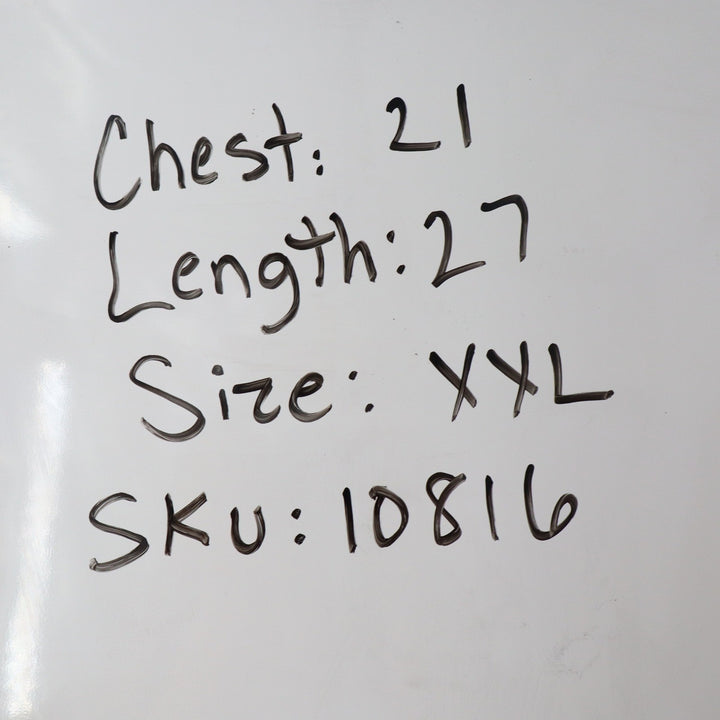 Chest: 21
Length: 27
Size: XXL
SKU: 10816